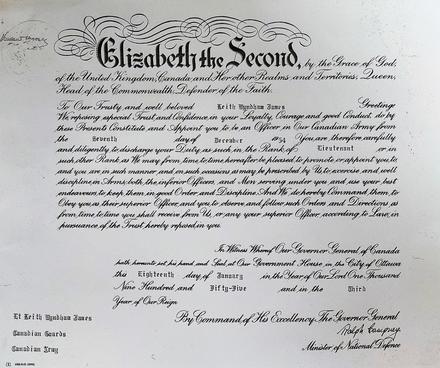 Elizabeth the Second, by the Grace of God,
of the United Kingdom, Canada and Her other Realms and Territories, Queen,
Head of the Commonwealth, Defender of the Faith.
To Our Trusty and well beloved Keith Wyndham James Greeting:
We reposing especial Trust and Confidence in your Loyalty, Courage and good Conduct, do by
these Presents Constitute and Appoint you to be an Officer in Our Canadian Army from
the Seventh day of December 1954 You are therefore carefully
and diligently to discharge your Duty as such, in the Rank of Lieutenant or in
such other Rank as We may from time to time hereafter be pleased to promote or appoint you to,
and you are in such manner and on such occasions as may be prescribed by Us to exercise and well
discipline in Arms both the inferior Officers and Men serving under you and use your best
endeavour to keep them in good Order and Discipline. And We do hereby Command them to
Obey you as their superior Officer, and you to observe and follow such Orders and Directions as
from time to time you shall receive from Us, or any your superior Officer, according to Law, in
pursuance of the Trust hereby reposed in you.
In Witness Whereof Our Governor General of Canada
hath hereunto set his hand and Seal at Our Government House in the City of Ottawa
this Eighteenth day of January in the Year of Our Lord One Thousand
Nine Hundred and Fifty-Five and in the Third
Year of Our Reign.
By Command of His Excellency The Governor General
Ralph Campney
Minister of National Defence
Lt Keith Wyndham James
Canadian Guards
Canadian Army